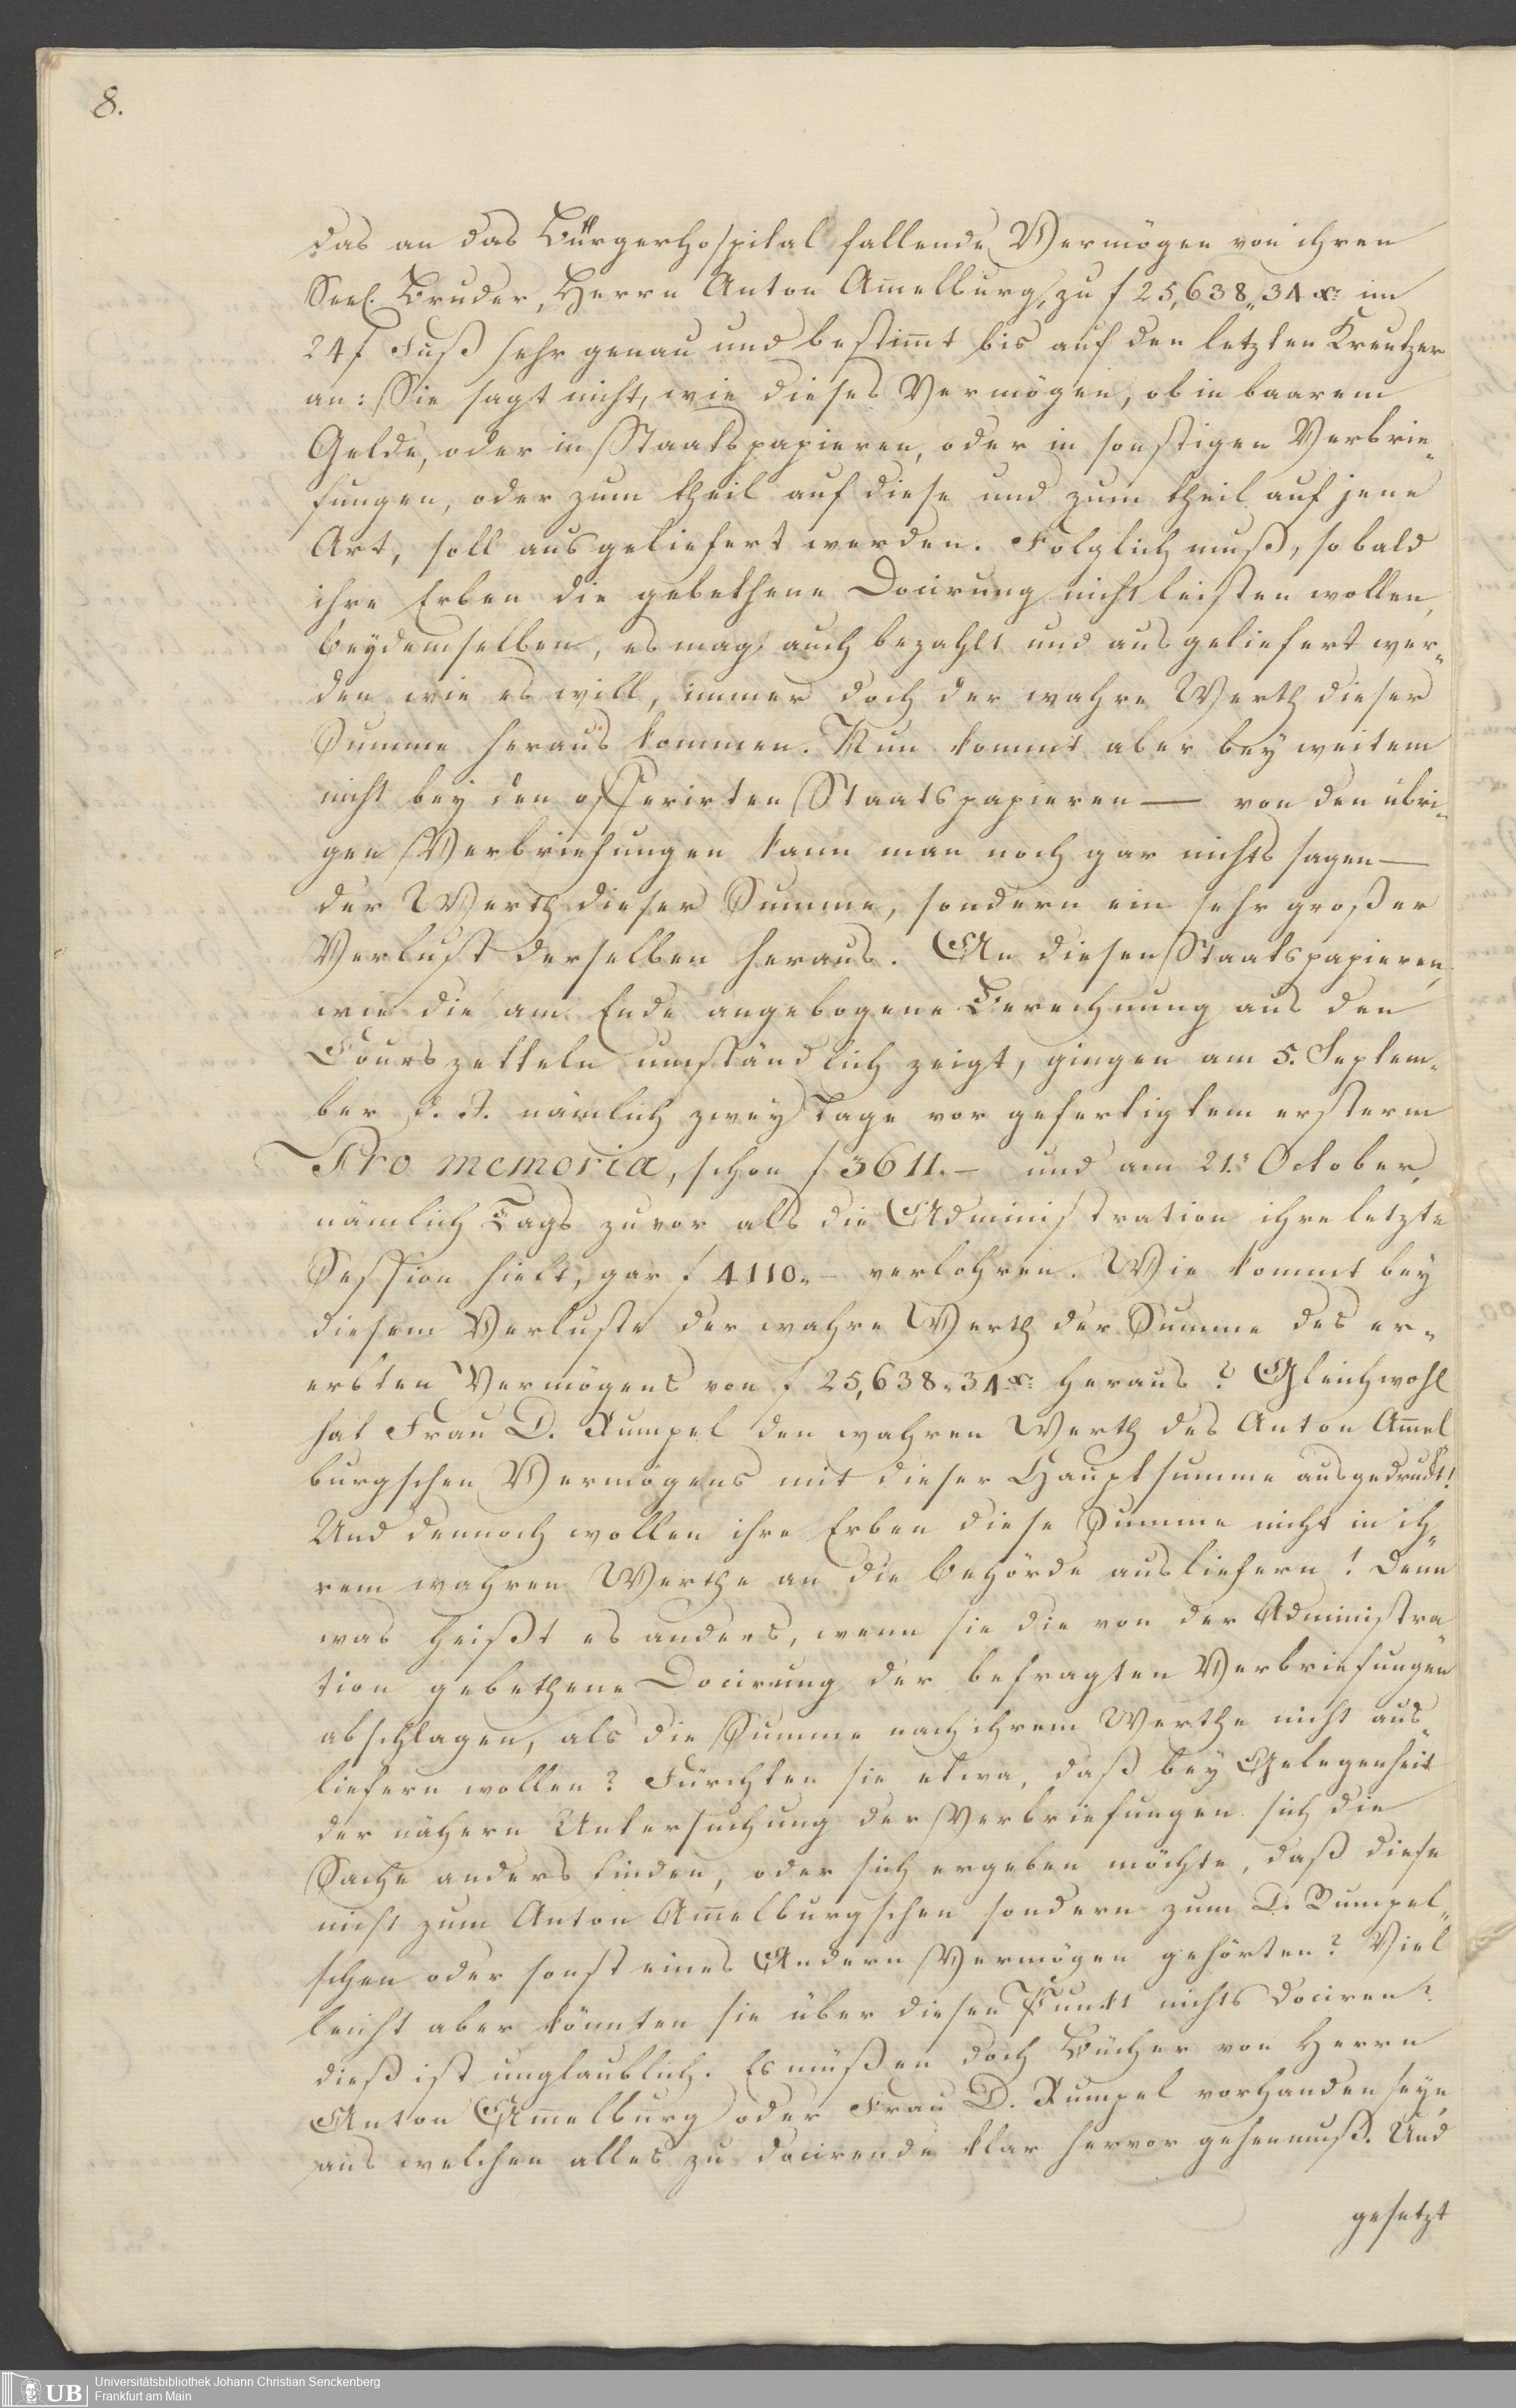 8.
das an das Bürgerhospital fallende Vermögen von ihren
Seel. Bruder, Herrn Anton Am̅elburg, zu f 25,638„34 xr im
24 f Fuß sehr genau und bestim̅t bis auf den letzten Kreutzer
an: Sie sagt nicht, wie dieses Vermögen, ob in baarem
Gelde, oder in Staatspapieren, oder in sonstigen Verbrie„
fungen, oder zum theil auf diese und zum theil auf jene
Art, soll ausgeliefert werden. Folglich muß, so bald
ihre Erben die gebethene Docirung nicht leisten wollen,
bey demselben, es mag auch bezahlt und ausgeliefert wer„
den wie es will, immer doch der wahre Werth dieser
Summe heraus kommen. Nun kommt aber bey weitem
nicht bey den offerirten Staatspapieren — von den übri„
gen Verbriefungen kann man noch gar nichts sagen —
der Werth dieser Summe, sondern ein sehr großer
Verlust derselben heraus. An diesen Staatspapieren,
wie die am Ende angebogene Berechnung aus den
Courszetteln umständlich zeigt, gingen am 5. Septem„
ber d. J. nämlich zwey Tage vor gefertigtem ersterm
Pro memoria, schon f 3611.— und am 21: October,
nämlich Tags zuvor als die Administration ihre letzte
Session hielt, gar f 4110„— verlohren. Wie kommt bey
diesem Verluste der wahre Werth der Summe des er„
erbten Vermögens von f 25,638„34 xr heraus? Gleichwohl
hat Frau D. Rumpel den wahren Werth des Anton Am̅el
burgschen Vermögens mit dieser Hauptsumme ausgedruckt!
Und dennoch wollen ihre Erben diese Summe nicht in ih„
rem wahren Werthe an die Behörde ausliefern! Denn
was heißt es anders, wenn sie die von der Administra
tion gebethene Docirung der befragten Verbriefungen
abschlagen, als die Summe nach ihrem Werthe nicht aus„
liefern wollen? Fürchten sie etwa, daß bey Gelegenheit
der nähern Untersuchung der Verbriefungen sich die
Sache anders finden, oder sich ergeben möchte, daß diese
nicht zum Anton Am̅elburgschen sondern zum D. Rumpel„
schen oder sonst eines Andern Vermögen gehörten? Viel
leicht aber könnten sie über diesen Punkt nichts dociren?
dieß ist unglaublich. Es müßen doch Bücher von Herrn
Anton Am̅elburg oder Frau D. Rumpel vorhanden seyn,
aus welchen alles zu docirende klar hervor gehen muß. Und
gesetzt
UB
Universitätsbibliothek Johann Christian Senckenberg
Frankfurt am Main